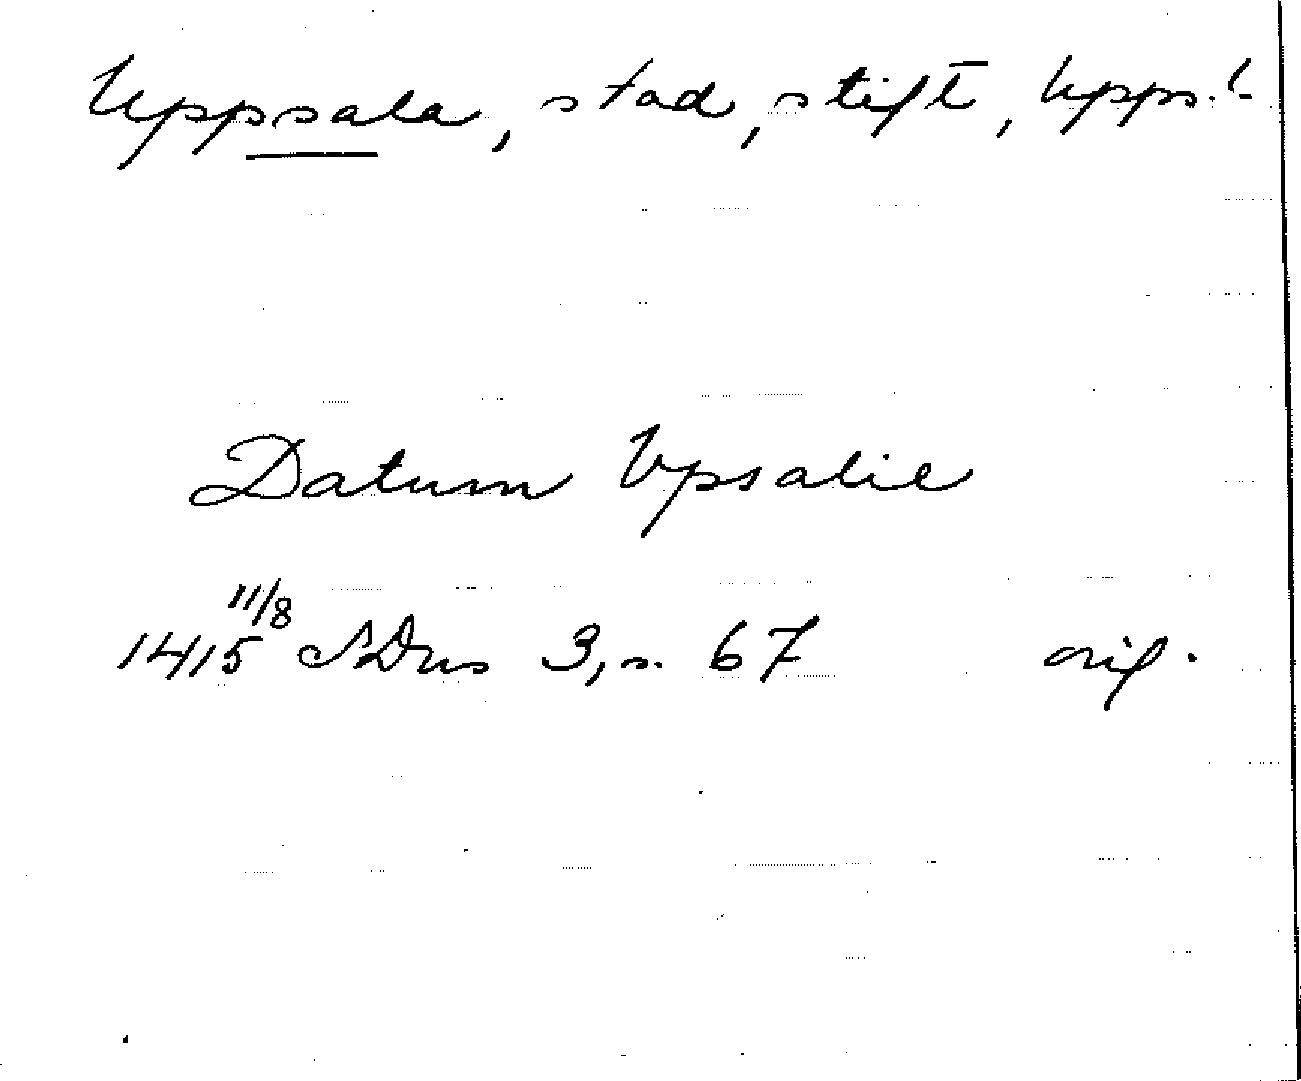 Uppsala, stad, stift, Upps. l.
Datum Vpsalie
1415 11/8 SDns 3, s. 67 orig.